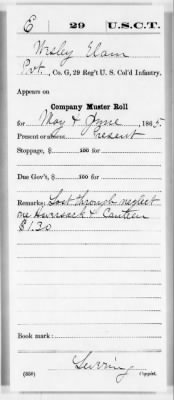 E 29 U.S.C.T.
Wesley Elam
Pvt., Co. G, 29 Reg't U. S. Col'd Infantry.
Appears on
Company Muster Roll
for May & June, 1865
Present or absent Present
Stoppage, $ 100 for
Due Gov't, $ 100 for
Remarks: Lost through neglect
one Haversack & Canteen
$1.30
Book mark:
(358) Copyist.